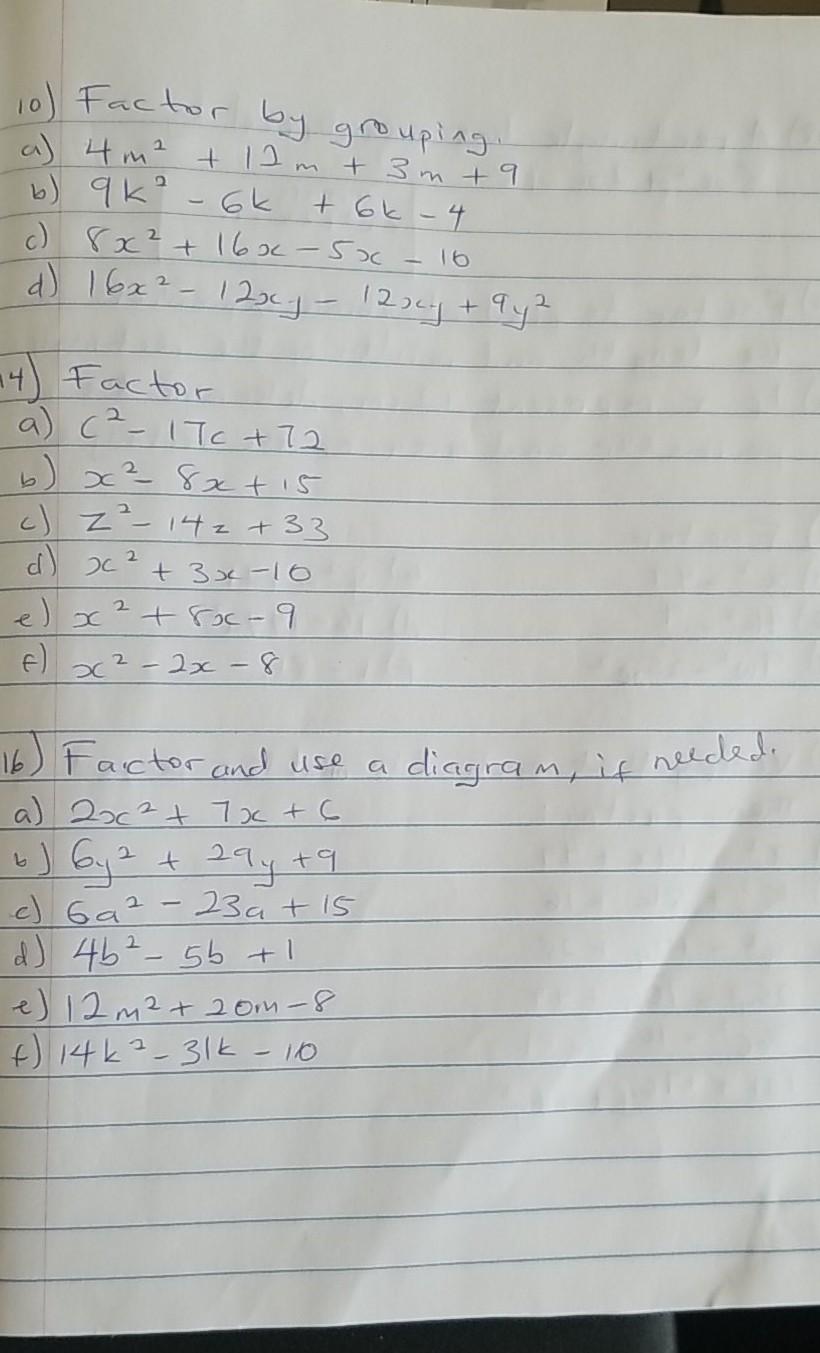 10) Factor by grouping.
a) 4m² + 12m + 3m + 9
b) 9k² - 6k + 6k - 4
c) 8x² + 16x - 5x - 10
d) 16x² - 12xy - 12xy + 9y²
14) Factor
a) c² - 17c + 72
b) x² - 8x + 15
c) z² - 14z + 33
d) x² + 3x - 10
e) x² + 8x - 9
f) x² - 2x - 8
16) Factor and use a diagram, if needed.
a) 2x² + 7x + 6
b) 6y² + 29y + 9
c) 6a² - 23a + 15
d) 4b² - 5b + 1
e) 12m² + 20m - 8
f) 14k² - 31k - 10